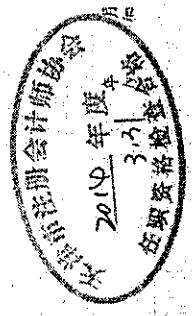 天津市注册会计师协会
2014 年度
3.31
任职资格检查合格
年
月